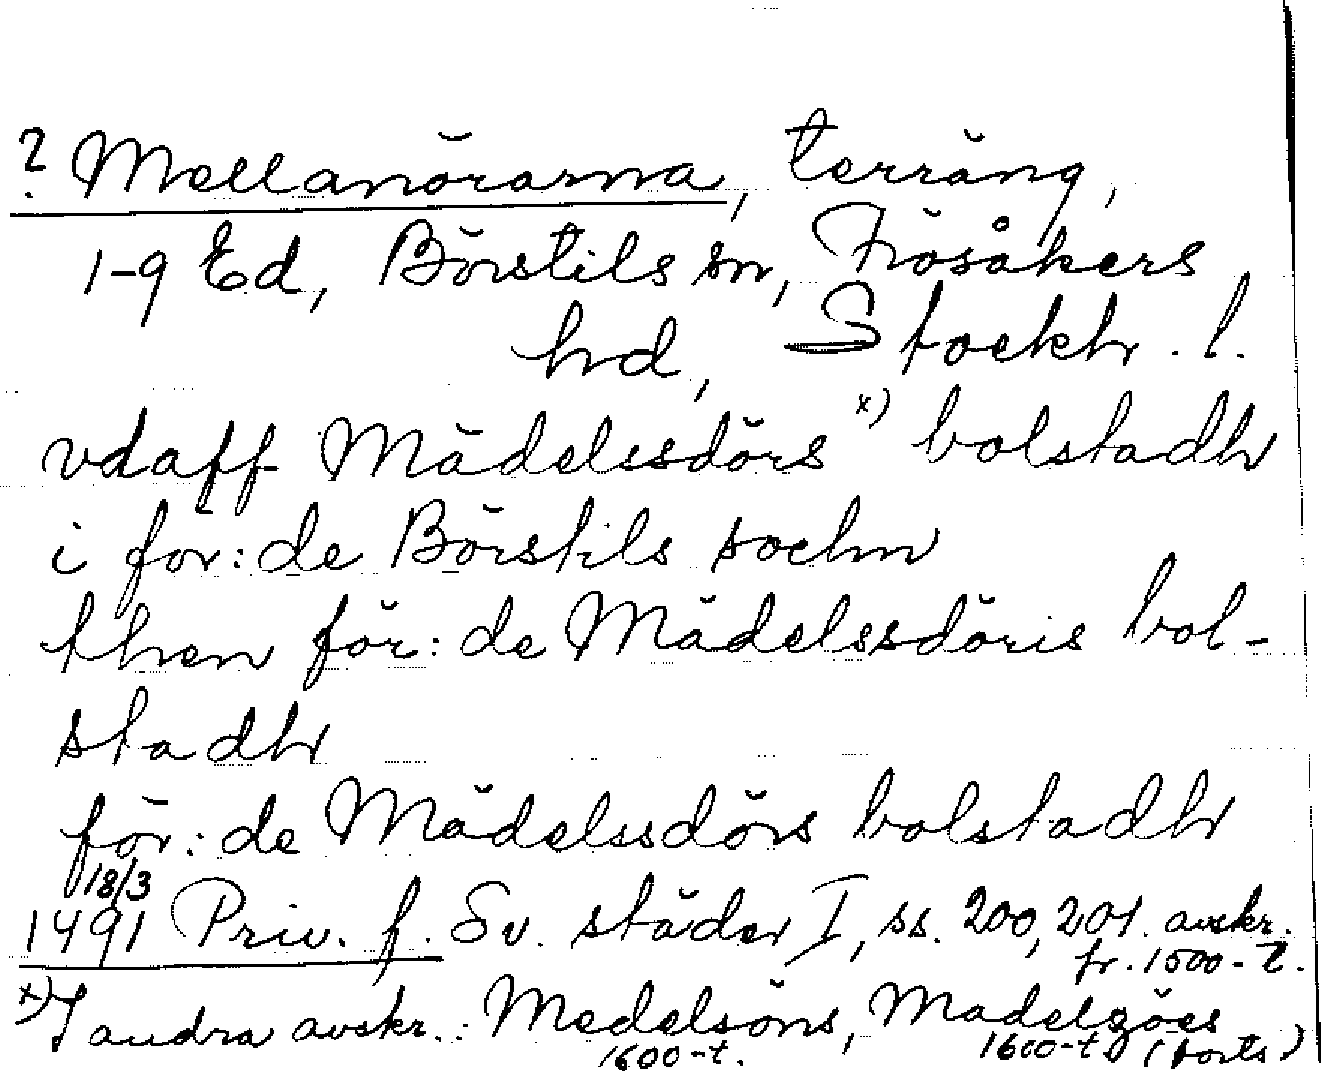 ? Mellanörarna, terräng,
1-9 Ed, Börstils sn, Frösåkers
hd, Stockh. l.
vdaff Mädelssdörs x) bolstadh
i for:de Börstils sochn
then för:de Mädelssdöris bol-
stadh
för:de Mädelssdörs bolstadh
18/3
1491 Priv. f. Sv. städer I, ss. 200, 201. avskr.
fr. 1500-t.
x) I andra avskr.: Medelsöns, Madelzöes
1600-t. 1600-t (forts)